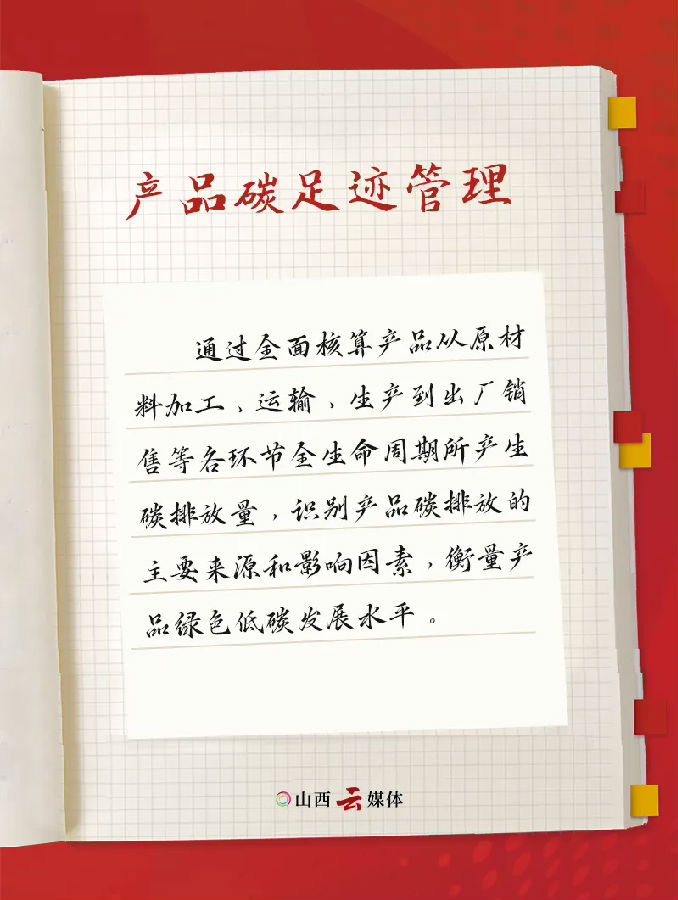 产品碳足迹管理
通过全面核算产品从原材
料加工、运输、生产到出厂销
售等各环节全生命周期所产生
碳排放量,识别产品碳排放的
主要来源和影响因素,衡量产
品绿色低碳发展水平。
山西云媒体